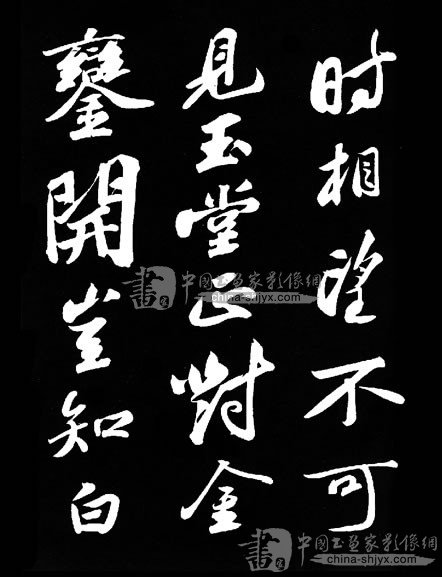 时相望不可
見玉堂正對金
鑾開豈知白
書 中國書畫家影像網
china-shjyx.com
書 中國書畫家影像網
china-shjyx.com